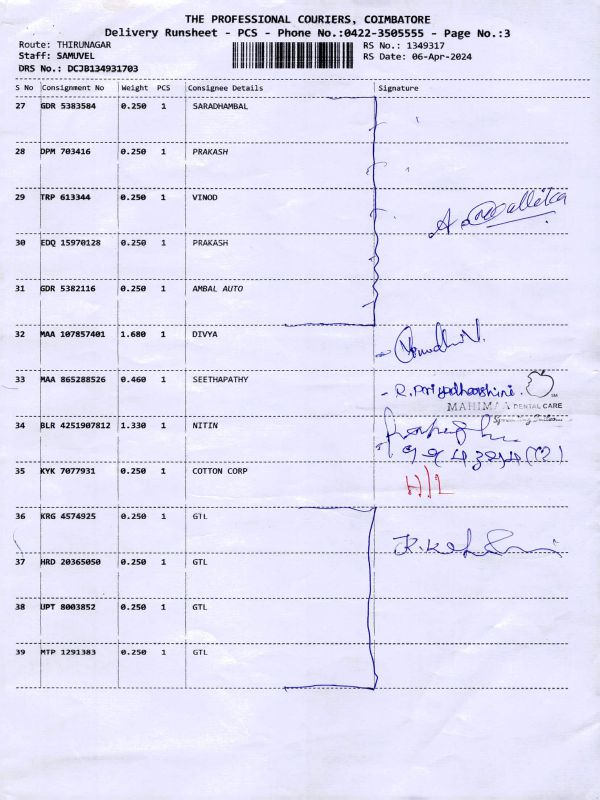 THE PROFESSIONAL COURIERS, COIMBATORE
Delivery Runsheet - PCS - Phone No.:0422-3505555 - Page No.:3
Route: THIRUNAGAR RS No.: 1349317
Staff: SAMUVEL RS Date: 06-Apr-2024
DRS No.: DCJB134931703
S No Consignment No Weight PCS Consignee Details Signature
27 GDR 5383584 0.250 1 SARADHAMBAL
28 DPM 703416 0.250 1 PRAKASH
29 TRP 613344 0.250 1 VINOD
A. Mallika
30 EDQ 15970128 0.250 1 PRAKASH
31 GDR 5382116 0.250 1 AMBAL AUTO
32 MAA 107857401 1.680 1 DIVYA
33 MAA 865288526 0.460 1 SEETHAPATHY - R. Priyadharshini.
MAHIMAA DENTAL CARE
34 BLR 4251907812 1.330 1 NITIN
35 KYK 7077931 0.250 1 COTTON CORP H/L
36 KRG 4574925 0.250 1 GTL
37 HRD 20365050 0.250 1 GTL
38 UPT 8003852 0.250 1 GTL
39 MTP 1291383 0.250 1 GTL